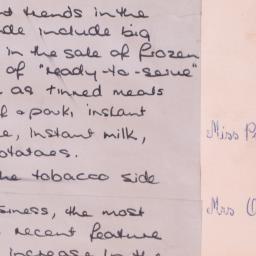 trends in the
include big
in the sale of frozen
of "ready-to-serve"
as tinned meals
& pork, instant
instant milk,
potatoes.
the tobacco side
Miss P
Mrs O
business, the most
recent feature
increase in the